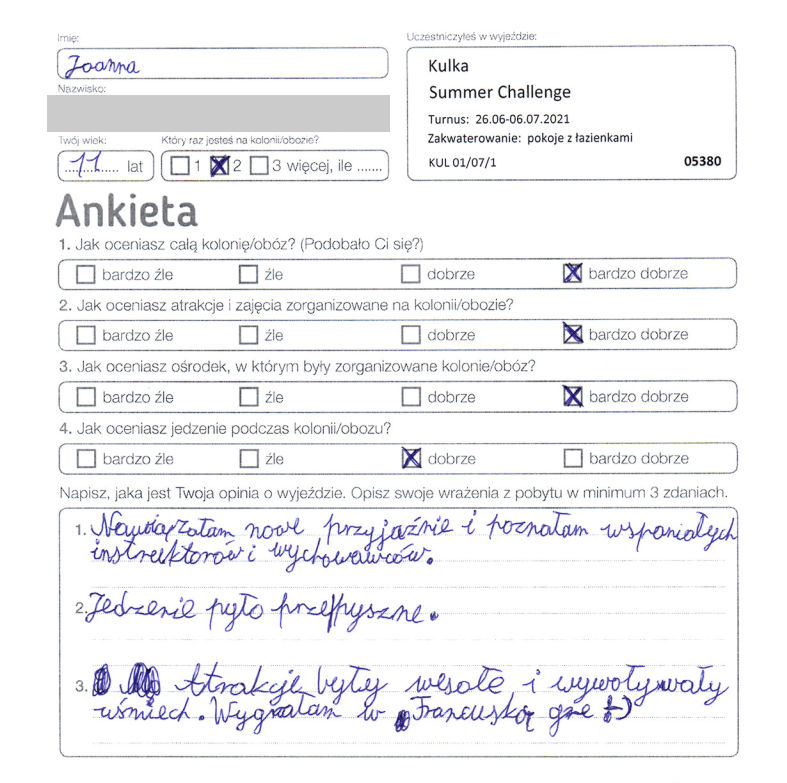 Imię:
Uczestniczyłeś w wyjeździe:
Joanna
Kulka
Summer Challenge
Nazwisko:
Turnus: 26.06-06.07.2021
Zakwaterowanie: pokoje z łazienkami
KUL 01/07/1 05380
Twój wiek: Który raz jesteś na kolonii/obozie?
11 lat 1 2 3 więcej, ile .......
Ankieta
1. Jak oceniasz całą kolonię/obóz? (Podobało Ci się?)
bardzo źle źle dobrze bardzo dobrze
2. Jak oceniasz atrakcje i zajęcia zorganizowane na kolonii/obozie?
bardzo źle źle dobrze bardzo dobrze
3. Jak oceniasz ośrodek, w którym były zorganizowane kolonie/obóz?
bardzo źle źle dobrze bardzo dobrze
4. Jak oceniasz jedzenie podczas kolonii/obozu?
bardzo źle źle dobrze bardzo dobrze
Napisz, jaka jest Twoja opinia o wyjeździe. Opisz swoje wrażenia z pobytu w minimum 3 zdaniach.
1. Nawiązałam nowe przyjaźnie i poznałam wspaniałych
instruktorów i wychowawców.
2. Jedzenie pyło przepyszne.
3. Atrakcje były wesołe i wywoływały
uśmiech. Wygrałam w Francuską grę :-)